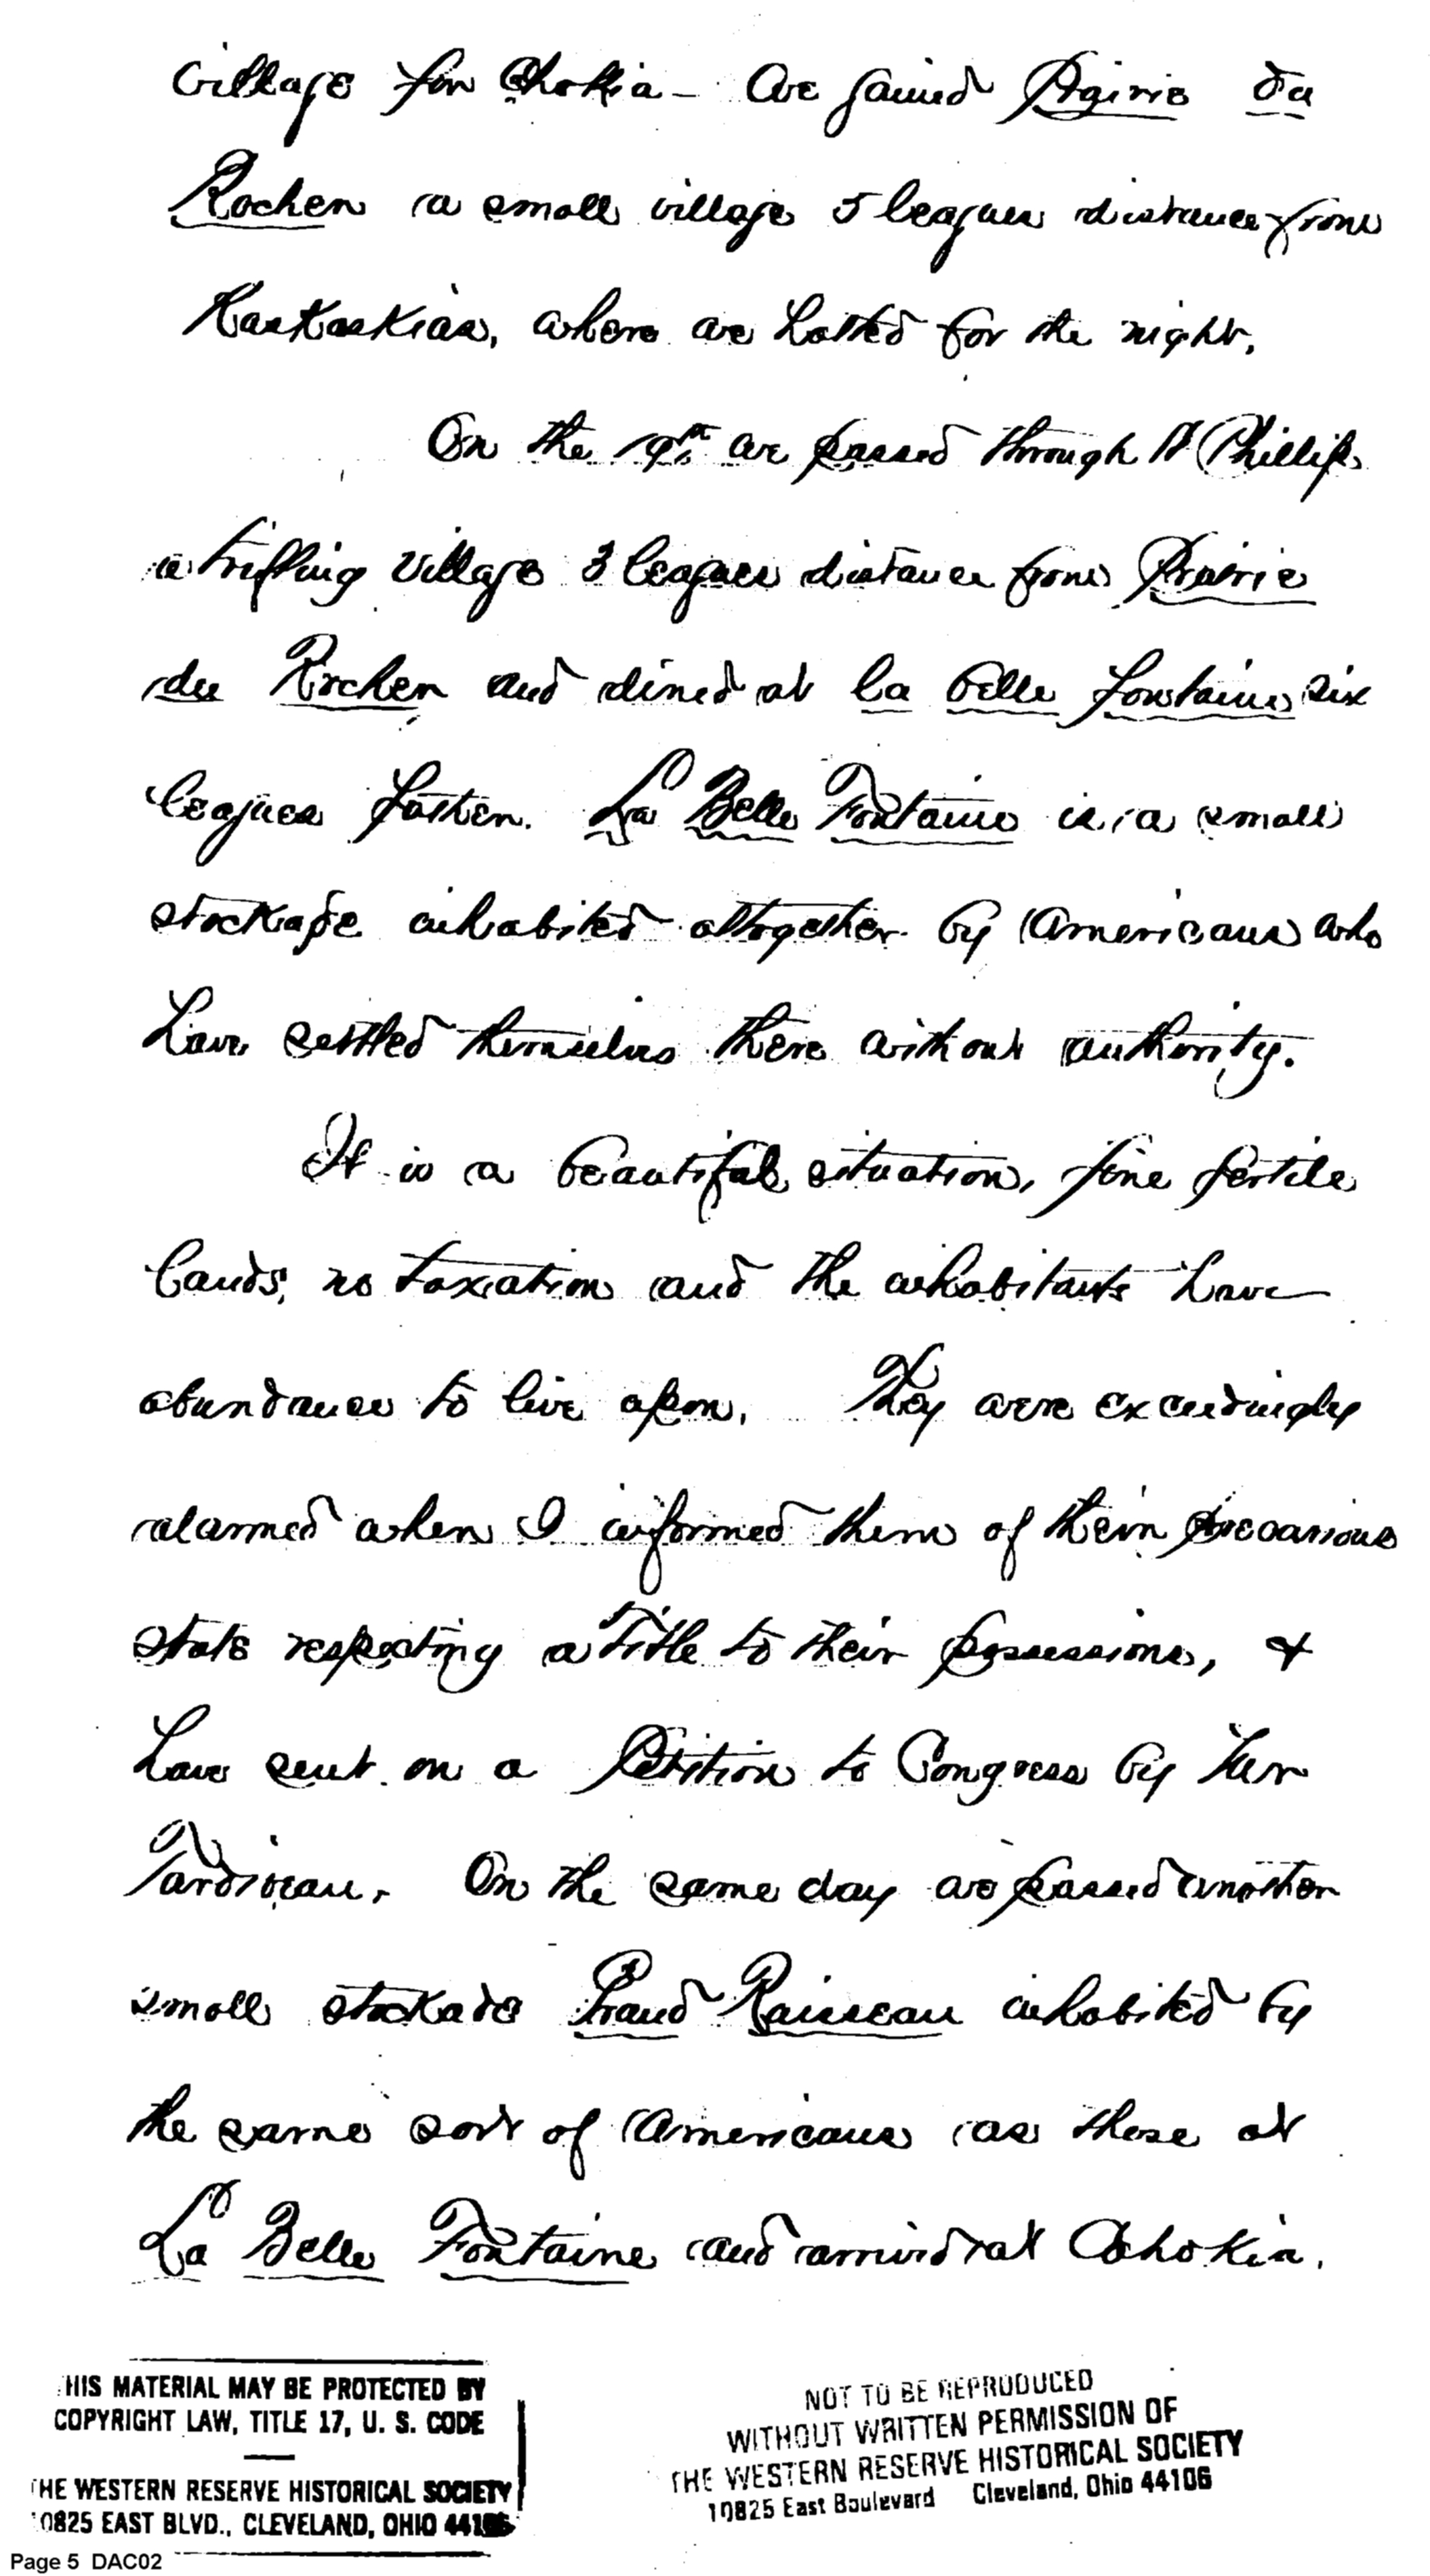 village for Chokia - we gained Prairie du
Rocher a small village 5 leagues distance from
Kaskaskias, where we halted for the night.
On the 19th we passed through St Phillips
a trifling village 3 leagues distance from Prairie
du Rocher and dined at la belle fontaine six
leagues further. La Belle Fontaine is a small
stockade inhabited altogether by Americans who
have settled themselves there without authority.
It is a beautiful situation, fine fertile
lands, no taxation and the inhabitants have
abundance to live upon. They were exceedingly
alarmed when I informed them of their precarious
state respecting a Title to their possessions, &
have sent on a Petition to Congress by
Tardiveau. On the same day we passed another
small stockade Grand Ruisseau inhabited by
the same sort of Americans as those at
La Belle Fontaine and arrived at Cahokia.
HIS MATERIAL MAY BE PROTECTED BY
COPYRIGHT LAW, TITLE 17, U. S. CODE
HE WESTERN RESERVE HISTORICAL SOCIETY
10825 EAST BLVD., CLEVELAND, OHIO 44106
NOT TO BE REPRODUCED
WITHOUT WRITTEN PERMISSION OF
THE WESTERN RESERVE HISTORICAL SOCIETY
10825 East Boulevard Cleveland, Ohio 44106
Page 5 DAC02